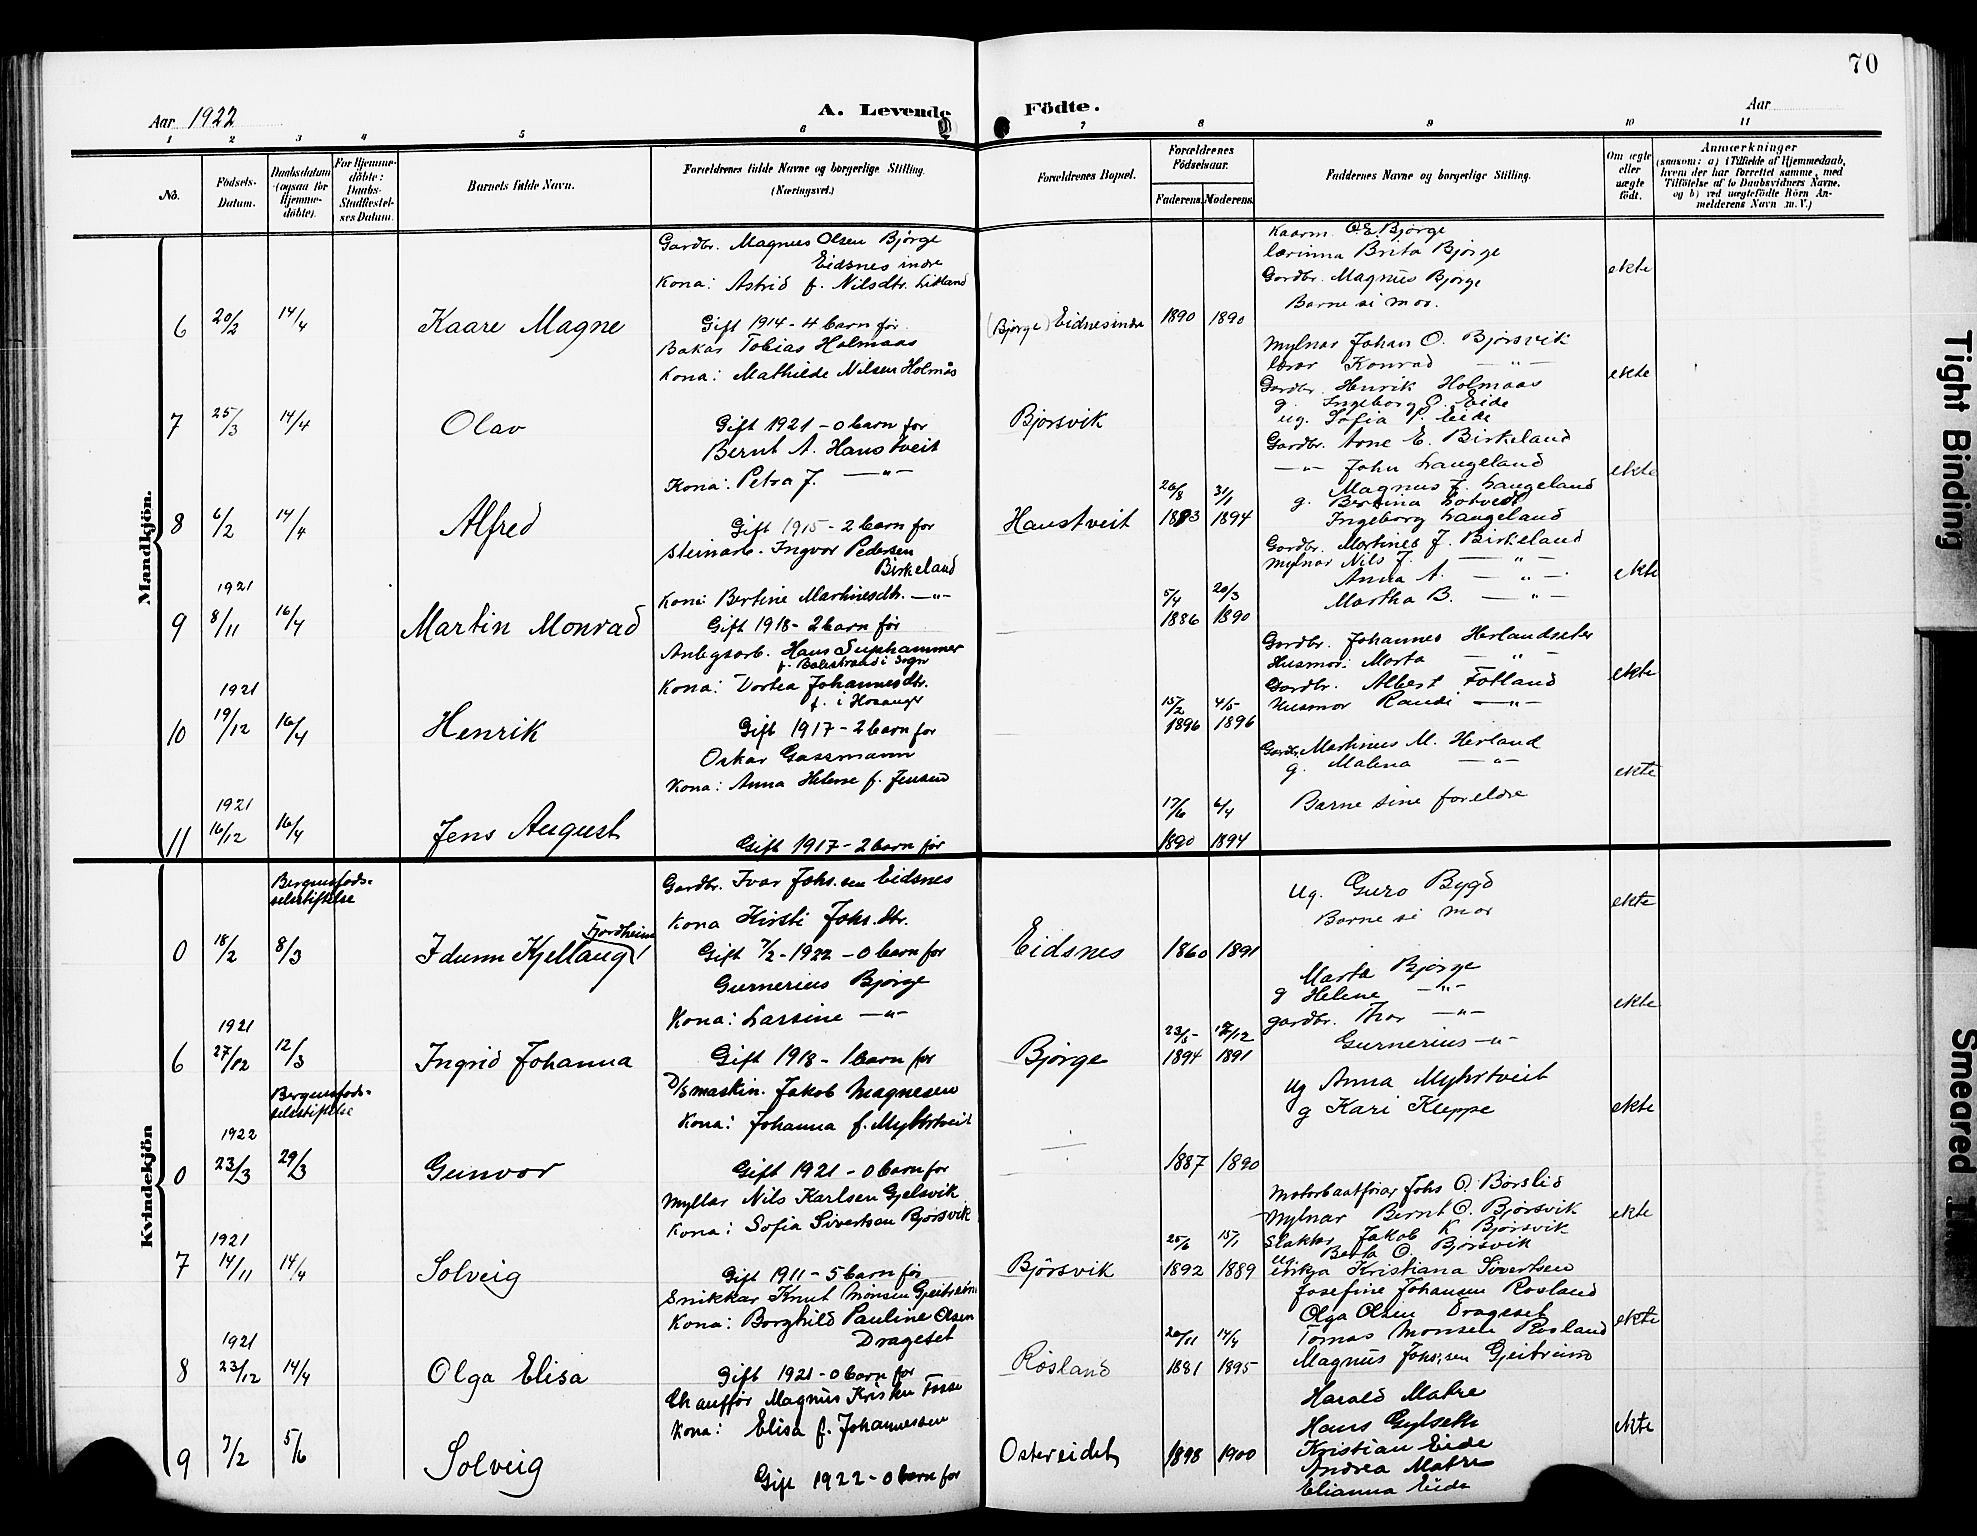 70
Aar 1922
A. Levende Födte.
Aar
1 2 3 4 5 6 7 8 9 10 11
No.
Födsels-Datum.
Daabsdatum (ogsaa for Hjemme-döbte).
For Hjemme-döbte: Daabs-Stadfæstel-ses Datum.
Barnets fulde Navn.
Forældrenes fulde Navne og borgerlige Stilling. (Næringsvei.)
Forældrenes Bopæl.
Forældrenes Födselsaar.
Faderens. Moderens.
Faddernes Navne og borgerlige Stilling.
Om ægte eller uægte födt.
Anmærkninger
(saasom: a) i Tilfælde af Hjemmedaab, hvem der har forrettet samme, med Tilföielse af to Daabsvidners Navne, og b) ved uægtefödte Börn An-melderens Navn m. V.)
Mandkjön.
Gardbr. Magnus Olsen Bjørge
Eidsnes indre
Kona: Astrid f. Nilsdtr. Litland
6 20/2 14/4 Kaare Magne
Gift 1914 - 4 barn før
(Bjørge) Eidnes indre 1890 1890
Kaarm. O.E. Bjørge
lærinna Brita Bjørge
Gardbr. Magnus Bjørge
Barne si mor.
ekte
Bakar Tobias Holmaas
Kona: Mathilde Nilsen Holmås
7 25/3 14/4 Olav
Gift 1921 - 0 barn før
Bjørsvik
Mylnar Johan O. Bjørsvik
lærar Konrad — " —
Gardbr. Henrik Holmaas
g. Ingeborg O. Eide
ug. Sofia P. Eide
ekte
Bernt A. Haustveit
Kona: Petra J. — " —
8 6/2 14/4 Alfred
Gift 1915 - 2 barn før
Haustveit 26/8 1883 31/1 1894
Gardbr. Arne E. Birkeland
— " — John Langeland
Magnus J. Langeland
g. Bertina Lotvedt
Ingeborg Langeland
ekte
Steinarb. Ingvar Pedersen
Birkeland
Kona Bertine Martinesdtr. — " —
1921
9 8/11 16/4 Martin Monrad
Gift 1918 - 2 barn før
5/4 1886 20/3 1890
Gardbr. Martines J. Birkeland
Mylnar Nils J. — " —
Anna A. — " —
Martha B. — " —
ekte
Anlegsarb. Hans Suphammer
f. Balestrand i Sogn
Kona: Dortea Johannesdtr.
f. i Hosanger
1921
10 19/12 16/4 Henrik
Gift 1917 - 2 barn før
15/2 1896 4/5 1896
Gardbr. Johannes Herlandseter
Husmor: Marta — " —
Gardbr. Albert Fotland
Husmor Randi — " —
ekte
Oskar Gassmann
Kona: Anna Helene f. Jensen
1921
11 16/12 16/4 Jens August
Gift 1917 - 2 barn før
17/6 1890 6/4 1894
Gardbr. Martinus M. Herland
g. Malena — " —
Barne sine foreldre
ekte
Kvindekjön
Bergensføds-
selsstiftelse
Gardbr. Ivar Johs.sen Eidsnes
Kona Kirsti Johs.dtr.
Fjordheim
0 18/2 8/3 Idunn Kjellaug
Gift 7/2 - 1922 - 0 barn før
Eidsnes 1860 1891
Ug. Guro Bygd
Barne si mor
ekte
Gurnerius Bjørge
Kona: Larsine — " —
1921
6 27/12 12/3 Ingrid Johanna
Gift 1918 - 1 barn før
Bjørge 23/5 1894 12/12 1891
Marta Bjørge
g Helene — " —
gardbr. Thor — " —
Gurnerius — " —
ekte
Bergensføds-
selsstiftelse
D/S maskin. Jakob Magnesen
Kona: Johanna f. Myhrtveit
1922
0 23/3 29/3 Gunvor
Gift 1921 - 0 barn før
1887 1890
Ug Anna Myhrtveit
g Kari Kleppe
ekte
Myllar Nils Karlsen Gjelsvik
Kona: Sofia Sivertsen Bjørsvik
1921
7 14/11 14/4 Solveig
Gift 1911 - 5 barn før
Bjørsvik 25/6 1892 15/1 1889
Motorbaatførar Johs O. Børslid
Mylnar Bernt O. Bjørsvik
Slaktar Jakob K Bjørsvik
Ug Berta O. Bjørsvik
Kristiana Sivertsen
ekte
Snikkar Knut Monsen Gjeitreim
Kona: Borghild Pauline Olsen
Drageset
1921
8 23/12 14/4 Olga Elisa
Gift 1921 - 0 barn før
Røsland 20/11 1881 14/4 1895
Josefine Johansen Rosland
Olga Olsen Drageset
Tomas Monsen Rosland
Magnus Johs.sen Gjeitreim
ekte
Chauffør Magnus Kristen Fosse
Kona: Elisa f. Johannessen
9 7/2 5/6 Solveig
Gift 1922 - 0 barn før
Ostereidet 1898 1900
Harald Matre
Hans Gylseth
Kristian Eide
Andrea Matre
Elianna Eide
ekte
Tight Binding
Smeared Ink